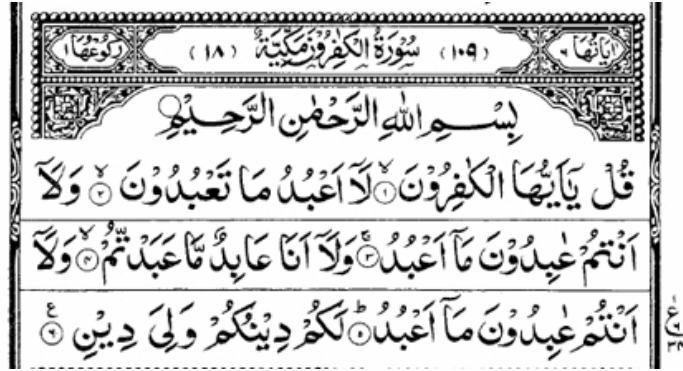 اٰيَاتُهَا ٦ (١٠٩) سُوْرَةُ الْكٰفِرُوْنَ مَكِّيَّةٌ (١٨) رُكُوْعُهَا ١
بِسْمِ اللهِ الرَّحْمٰنِ الرَّحِيْمِ
قُلْ يٰٓاَيُّهَا الْكٰفِرُوْنَ ۙ﴿١﴾ لَآ اَعْبُدُ مَا تَعْبُدُوْنَ ۙ﴿٢﴾ وَلَآ
اَنْتُمْ عٰبِدُوْنَ مَآ اَعْبُدُ ۚ﴿٣﴾ وَلَآ اَنَا عَابِدٌ مَّا عَبَدْتُّمْ ۙ﴿٤﴾ وَلَآ
اَنْتُمْ عٰبِدُوْنَ مَآ اَعْبُدُ ؕ﴿٥﴾ لَكُمْ دِيْنُكُمْ وَلِيَ دِيْنِ ﴿٦﴾ ع